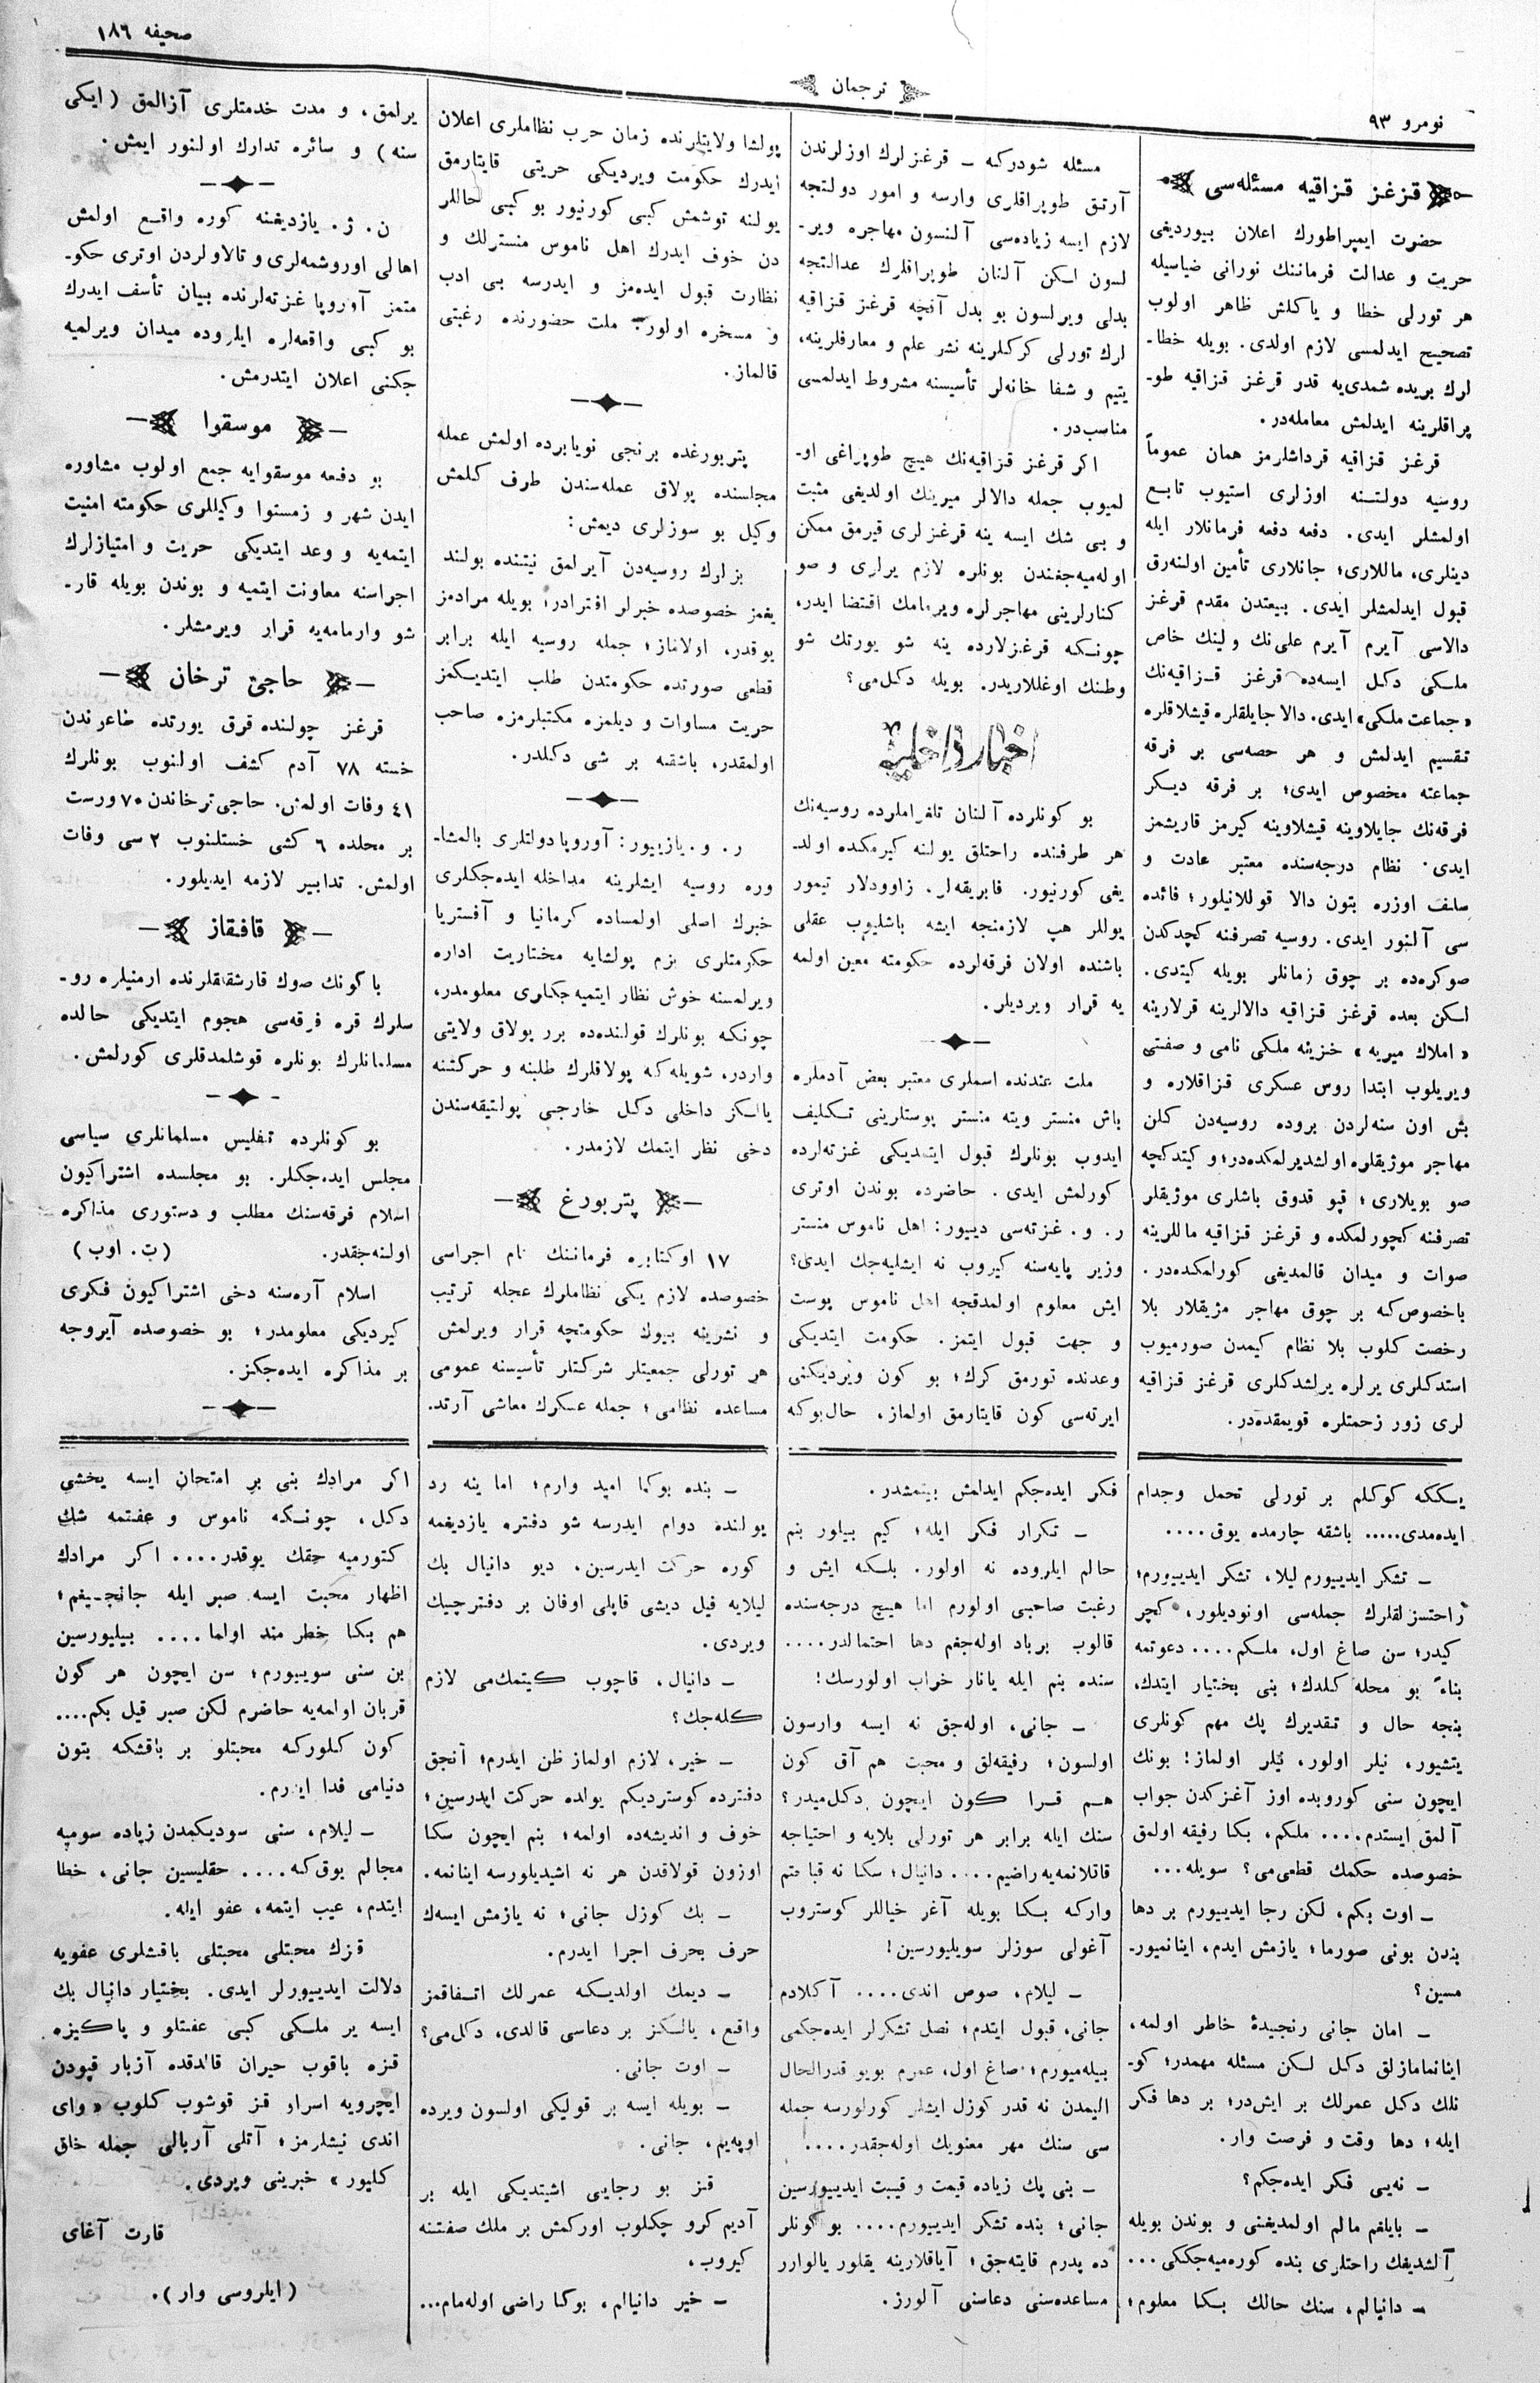 صحیفه ١٨٦
ترجمان
نومرو ٩٣
قرغز قزاقیه مسئله‌سی
حضرت ایمپراطورك اعلان بیوردیغی
حریت و عدالت فرماننك نورانی ضیاسیله
هر تورلی خطا و یاكلش ظاهر اولوب
تصحیح ایدلمسی لازم اولدی. بویله خطا-
لرك بریده شمدی‌یه قدر قرغز قزاقیه طو-
پراقلرینه ایدلمش معامله‌در.
قرغز قزاقیه قرداشلرمز همان عموماً
روسیه دولتنه اوزلری استیوب تابع
اولمشلر ایدی. دفعه دفعه فرمانلار ایله
دینلری، ماللاری؛ جانلاری تأمین اولنه‌رق
قبول ایدلمشلر ایدی. بیعتدن مقدم قرغز
دالاسی آیرم آیرم علی‌نك ولینك خاص
ملكی دكل ایسه‌ده قرغز قزاقیه‌نك
«جماعت ملكی» ایدی. دالا جایلقلره قیشلاقلره
تقسیم ایدلمش و هر حصه‌سی بر فرقه
جماعته مخصوص ایدی؛ بر فرقه دیكر
فرقه‌نك جایلاوینه قیشلاوینه كیرمز قاریشمز
ایدی. نظام درجه‌سنده معتبر عادت و
سلف اوزره بتون دالا قوللانیلور؛ فائده
سی آلنور ایدی. روسیه تصرفنه كچدكدن
صوكره‌ده بر چوق زمانلر بویله كیتدی.
لكن بعده قرغز قزاقیه دالالرینه قرلارینه
«املاك میریه» خزینه ملكی نامی و صفتی
ویریلوب ابتدا روس عسكری قزاقلاره و
بش اون سنه‌لردن بروده روسیه‌دن كلن
مهاجر موژیقلره اولشدیرلمكده‌در؛ و كیتدكچه
صو بویلاری؛ قپو قدوق باشلری موژیقلر
تصرفنه كچورلمكده و قرغز قزاقیه ماللرینه
صوات و میدان قالمدیغی كورلمكده‌در.
باخصوص‌كه بر چوق مهاجر مژیقلار بلا
رخصت كلوب بلا نظام كیمدن صورمیوب
استدكلری یرلره یرلشدكلری قرغز قزاقیه
لری زور زحمتلره قویمقده‌در.
مسئله شودركه ـ قرغزلرك اوزلرندن
آرتق طوپراقلری وارسه و امور دولتجه
لازم ایسه زیاده‌سی آلنسون مهاجره ویر-
لسون لكن آلنان طوپراقلرك عدالتجه
بدلی ویرلسون بو بدل آقچه قرغز قزاقیه
لرك تورلی كركلرینه نشر علم و معارفلرینه،
یتیم و شفا خانه‌لر تأسیسنه مشروط ایدلمسی
مناسب‌در.
اكر قرغز قزاقیه‌نك هیچ طوپراغی او-
لمیوب جمله دالالر میرینك اولدیغی مثبت
و بی شك ایسه ینه قرغزلری قیرمق ممكن
اوله‌میه‌جغندن بونلره لازم یرلری و صو
كنارلرینی مهاجرلره ویرمامك اقتضا ایدر،
چونكه قرغزلارده ینه شو یورتك شو
وطنك اوغللاریدر. بویله دكل‌می؟
اخبار داخلیه
بو كونلرده آلنان تلغراملرده روسیه‌نك
هر طرفنده راحتلق یولنه كیرمكده اولد-
یغی كورنیور. فابریقه‌لر. زاوودلار تیمور
یوللر هپ لازمنجه ایشه باشلیوب عقلی
باشنده اولان فرقه‌لرده حكومته معین اولمه
یه قرار ویردیلر.
ملت عندنده اسملری معتبر بعض آدملره
باش منستر ویته منستر پوستلرینی تكلیف
ایدوب بونلرك قبول ایتمدیكی غزته‌لرده
كورلمش ایدی. حاضرده بوندن اوتری
ر. و. غزته‌سی دییور: اهل ناموس منستر
وزیر پایه‌سنه كیروب نه ایشلیه‌جك ایدی؟
ایش معلوم اولمدقجه اهل ناموس پوست
و جهت قبول ایتمز. حكومت ایتدیكی
وعدنده تورمق كرك؛ بو كون ویردیكنی
ایرته‌سی كون قایتارمق اولماز، حال‌بوكه
پولشا ولایتلرنده زمان حرب نظاملری اعلان
ایدرك حكومت ویردیكی حریتی قایتارمق
یولنه توشمش كبی كورنیور بو كبی حاللر
دن خوف ایدرك اهل ناموس منسترلك و
نظارت قبول ایده‌مز و ایدرسه بی ادب
و مسخره اولور. ملت حضورنده رغبتی
قالماز.
پتربورغده برنجی نویابرده اولمش عمله
مجلسنده پولاق عمله‌سندن طرف كلمش
وكیل بو سوزلری دیمش:
بزلرك روسیه‌دن آیرلمق نیتنده بولند
یغمز خصوصده خبرلر افترادر؛ بویله مرادمز
یوقدر، اولاماز؛ جمله روسیه ایله برابر
قطعی صورتده حكومتدن طلب ایتدیكمز
حریت مساوات و دیلمزه مكتبلرمزه صاحب
اولمقدر، باشقه بر شی دكلدر.
ر. و. یازییور: آوروپا دولتلری بالمشا-
وره روسیه ایشلرینه مداخله ایده‌جكلری
خبرك اصلی اولمساده كرمانیا و آفستریا
حكومتلری بزم پولشایه مختاریت اداره
ویرلمسنه خوش نظار ایتمیه‌جكلری معلومدر،
چونكه بونلرك قولنده‌ده برر پولاق ولایتی
واردر، شویله‌كه پولاقلرك طلبنه و حركتنه
یالكز داخلی دكل خارجی پولتیقه‌سندن
دخی نظر ایتمك لازمدر.
پتربورغ
١٧ اوكتابره فرماننك تام اجراسی
خصوصده لازم یكی نظاملرك عجله ترتیب
و نشرینه بیوك حكومتچه قرار ویرلمش
هر تورلی جمعیتلر شركتلر تأسیسنه عمومی
مساعده نظامی؛ جمله عسكرك معاشی آرتد.
یرلمق، و مدت خدمتلری آزالمق (ایكی
سنه) و سائره تدارك اولنور ایمش.
ن. ژ. یازدیغنه كوره واقع اولمش
اهالی اوروشمه‌لری و تالاولردن اوتری حكو-
متمز آوروپا غزته‌لرنده بیان تأسف ایدرك
بو كبی واقعه‌لره ایلروده میدان ویرلمیه
جكنی اعلان ایتدرمش.
موسقوا
بو دفعه موسقوایه جمع اولوب مشاوره
ایدن شهر و زمستوا وكیللری حكومته امنیت
ایتمه‌یه و وعد ایتدیكی حریت و امتیازلرك
اجراسنه معاونت ایتمیه و بوندن بویله قار-
شو وارمامه‌یه قرار ویرمشلر.
حاجئ ترخان
قرغز چولنده قرق یورتده طاعوندن
خسته ٧٨ آدم كشف اولنوب بونلرك
٤١ وفات اولمش. حاجی ترخاندن ٧٠ ورست
بر محلده ٦ كشی خستلنوب ٢ سی وفات
اولمش. تدابیر لازمه ایدیلور.
قافقاز
باكونك صوك قارشقلقلرنده ارمنیلره رو-
سلرك قره فرقه‌سی هجوم ایتدیكی حالده
مسلمانلرك بونلره قوشلمدقلری كورلمش.
بو كونلرده تفلیس مسلمانلری سیاسی
مجلس ایده‌جكلر. بو مجلسده اشتراكیون
اسلام فرقه‌سنك مطلب و دستوری مذاكره
اولنه‌جقدر. (ت. اوب)
اسلام آره‌سنه دخی اشتراكیون فكری
كیردیكی معلومدر؛ بو خصوصده آیروجه
بر مذاكره ایده‌جكز.
یككه كوكلم بر تورلی تحمل وجدام
ایده‌مدی..... باشقه چارمده یوق....
ـ تشكر ایدییورم لیلا، تشكر ایدییورم؛
راحتسزلقلرك جمله‌سی اونودیلور، كچر
كیدر؛ سن صاغ اول، ملكم.... دعوتمه
بناءً بو محله كلدك؛ بنی بختیار ایتدك.
بنجه حال و تقدیرك پك مهم كونلری
یتشیور، نیلر اولور، نیلر اولماز! بونك
ایچون سنی كوروبده اوز آغزكدن جواب
آلمق ایستدم.... ملكم، بكا رفیقه اولمق
خصوصده حكمك قطعی‌می؟ سویله...
ـ اوت بكم، لكن رجا ایدییورم بر دها
بندن بونی صورما؛ یازمش ایدم، اینانمیور-
مسین؟
ـ امان جانی رنجیدهٔ خاطر اولمه،
اینانمامازلق دكل لكن مسئله مهمدر؛ كو-
نلك دكل عمرلك بر ایش‌در؛ بر دها فكر
ایله؛ دها وقت و فرصت وار.
ـ نه‌یی فكر ایده‌جكم؟
ـ بایلغم مالم اولمدیغنی و بوندن بویله
آلشدیغك راحتلری بنده كوره‌میه‌جككی...
ـ دانیالم، سنك حالك بكا معلوم؛
فكر ایده‌جكم ایدلمش بیتمشدر.
ـ تكرار فكر ایله؛ كیم بیلور بنم
حالم ایلروده نه اولور. بلكه ایش و
رغبت صاحبی اولورم اما هیچ درجه‌سنده
قالوب برباد اوله‌جغم دها احتمالدر....
سنده بنم ایله یانار خراب اولورسك!
ـ جانی، اوله‌جق نه ایسه وارسون
اولسون؛ رفیقه‌لق و محبت هم آق كون
هم قرا كون ایچون دكل‌میدر؟
سنك ایله برابر هر تورلی بلایه و احتیاجه
قاتلانمه‌یه راضیم.... دانیال؛ سكا نه قباحتم
واركه بكا بویله آغر خیاللر كوستروب
آغولی سوزلر سویلیورسین!
ـ لیلام، صوص اندی.... آكلادم
جانی، قبول ایتدم؛ نصل تشكرلر ایده‌جكمی
بیله‌میورم؛ صاغ اول، عمرم بویو قدرالحال
الیمدن نه قدر كوزل ایشلر كورلورسه جمله
سی سنك مهر معنویك اوله‌جقدر....
ـ بنی پك زیاده قیمت و قیبت ایدییورسین
جانی؛ بنده تشكر ایدییورم.... بو كونلر
ده پدرم قایته‌جق؛ آیاقلارینه یقلور یالوارر
مساعده‌سنی دعاسنی آلورز.
ـ بنده بوكا امید وارم؛ اما ینه رد
یولنده دوام ایدرسه شو دفتره یازدیغمه
كوره حركت ایدرسین، دیو دانیال بك
لیلایه فیل دیشی قاپلی اوفان بر دفترچیك
ویردی.
ـ دانیال، قاچوب كیتمك‌می لازم
كله‌جك؟
ـ خیر، لازم اولماز ظن ایدرم؛ آنجق
دفترده كوستردیكم یولده حركت ایدرسین؛
خوف و اندیشه‌ده اولمه؛ بنم ایچون سكا
اوزون قولاقدن هر نه اشیدیلورسه اینانمه.
ـ بك كوزل جانی؛ نه یازمش ایسه‌ك
حرف بحرف اجرا ایدرم.
ـ دیمك اولدیكه عمرلك اتفاقمز
واقع، یالكز بر دعاسی قالدی، دكل‌می؟
ـ اوت جانی.
ـ بویله ایسه بر قولیكی اولسون ویرده
اوپه‌یم، جانی.
قز بو رجایی اشیتدیكی ایله بر
آدیم كرو چكلوب اوركمش بر ملك صفتنه
كیروب،
ـ خیر دانیالم، بوكا راضی اوله‌مام...
اكر مرادك بنی بر امتحان ایسه یخشی
دكل، چونكه ناموس و عفتمه شك
كتورمیه حقك یوقدر.... اكر مرادك
اظهار محبت ایسه صبر ایله جانجیغم؛
هم بكا خطر مند اولما.... بیلیورسین
بن سنی سوییورم؛ سن ایچون هر كون
قربان اولمه‌یه حاضرم لكن صبر قیل بكم....
كون كلوركه محبتلو بر باقشكه بتون
دنیامی فدا ایدرم.
ـ لیلام، سنی سودیكمدن زیاده سومیه
مجالم یوق‌كه.... حقلیسین جانی، خطا
ایتدم، عیب ایتمه، عفو ایله.
قزك محبتلی محبتلی باقشلری عفویه
دلالت ایدییورلر ایدی. بختیار دانیال بك
ایسه بر ملكی كبی عفتلو و پاكیزه
قزه باقوب حیران قالدقده آزبار قپودن
ایچرویه اسراو قز قوشوب كلوب «وای
اندی نیشلرمز؛ آتلی آربالی جمله خلق
كلیور» خبرینی ویردی.
قارت آغای
(ایلروسی وار).